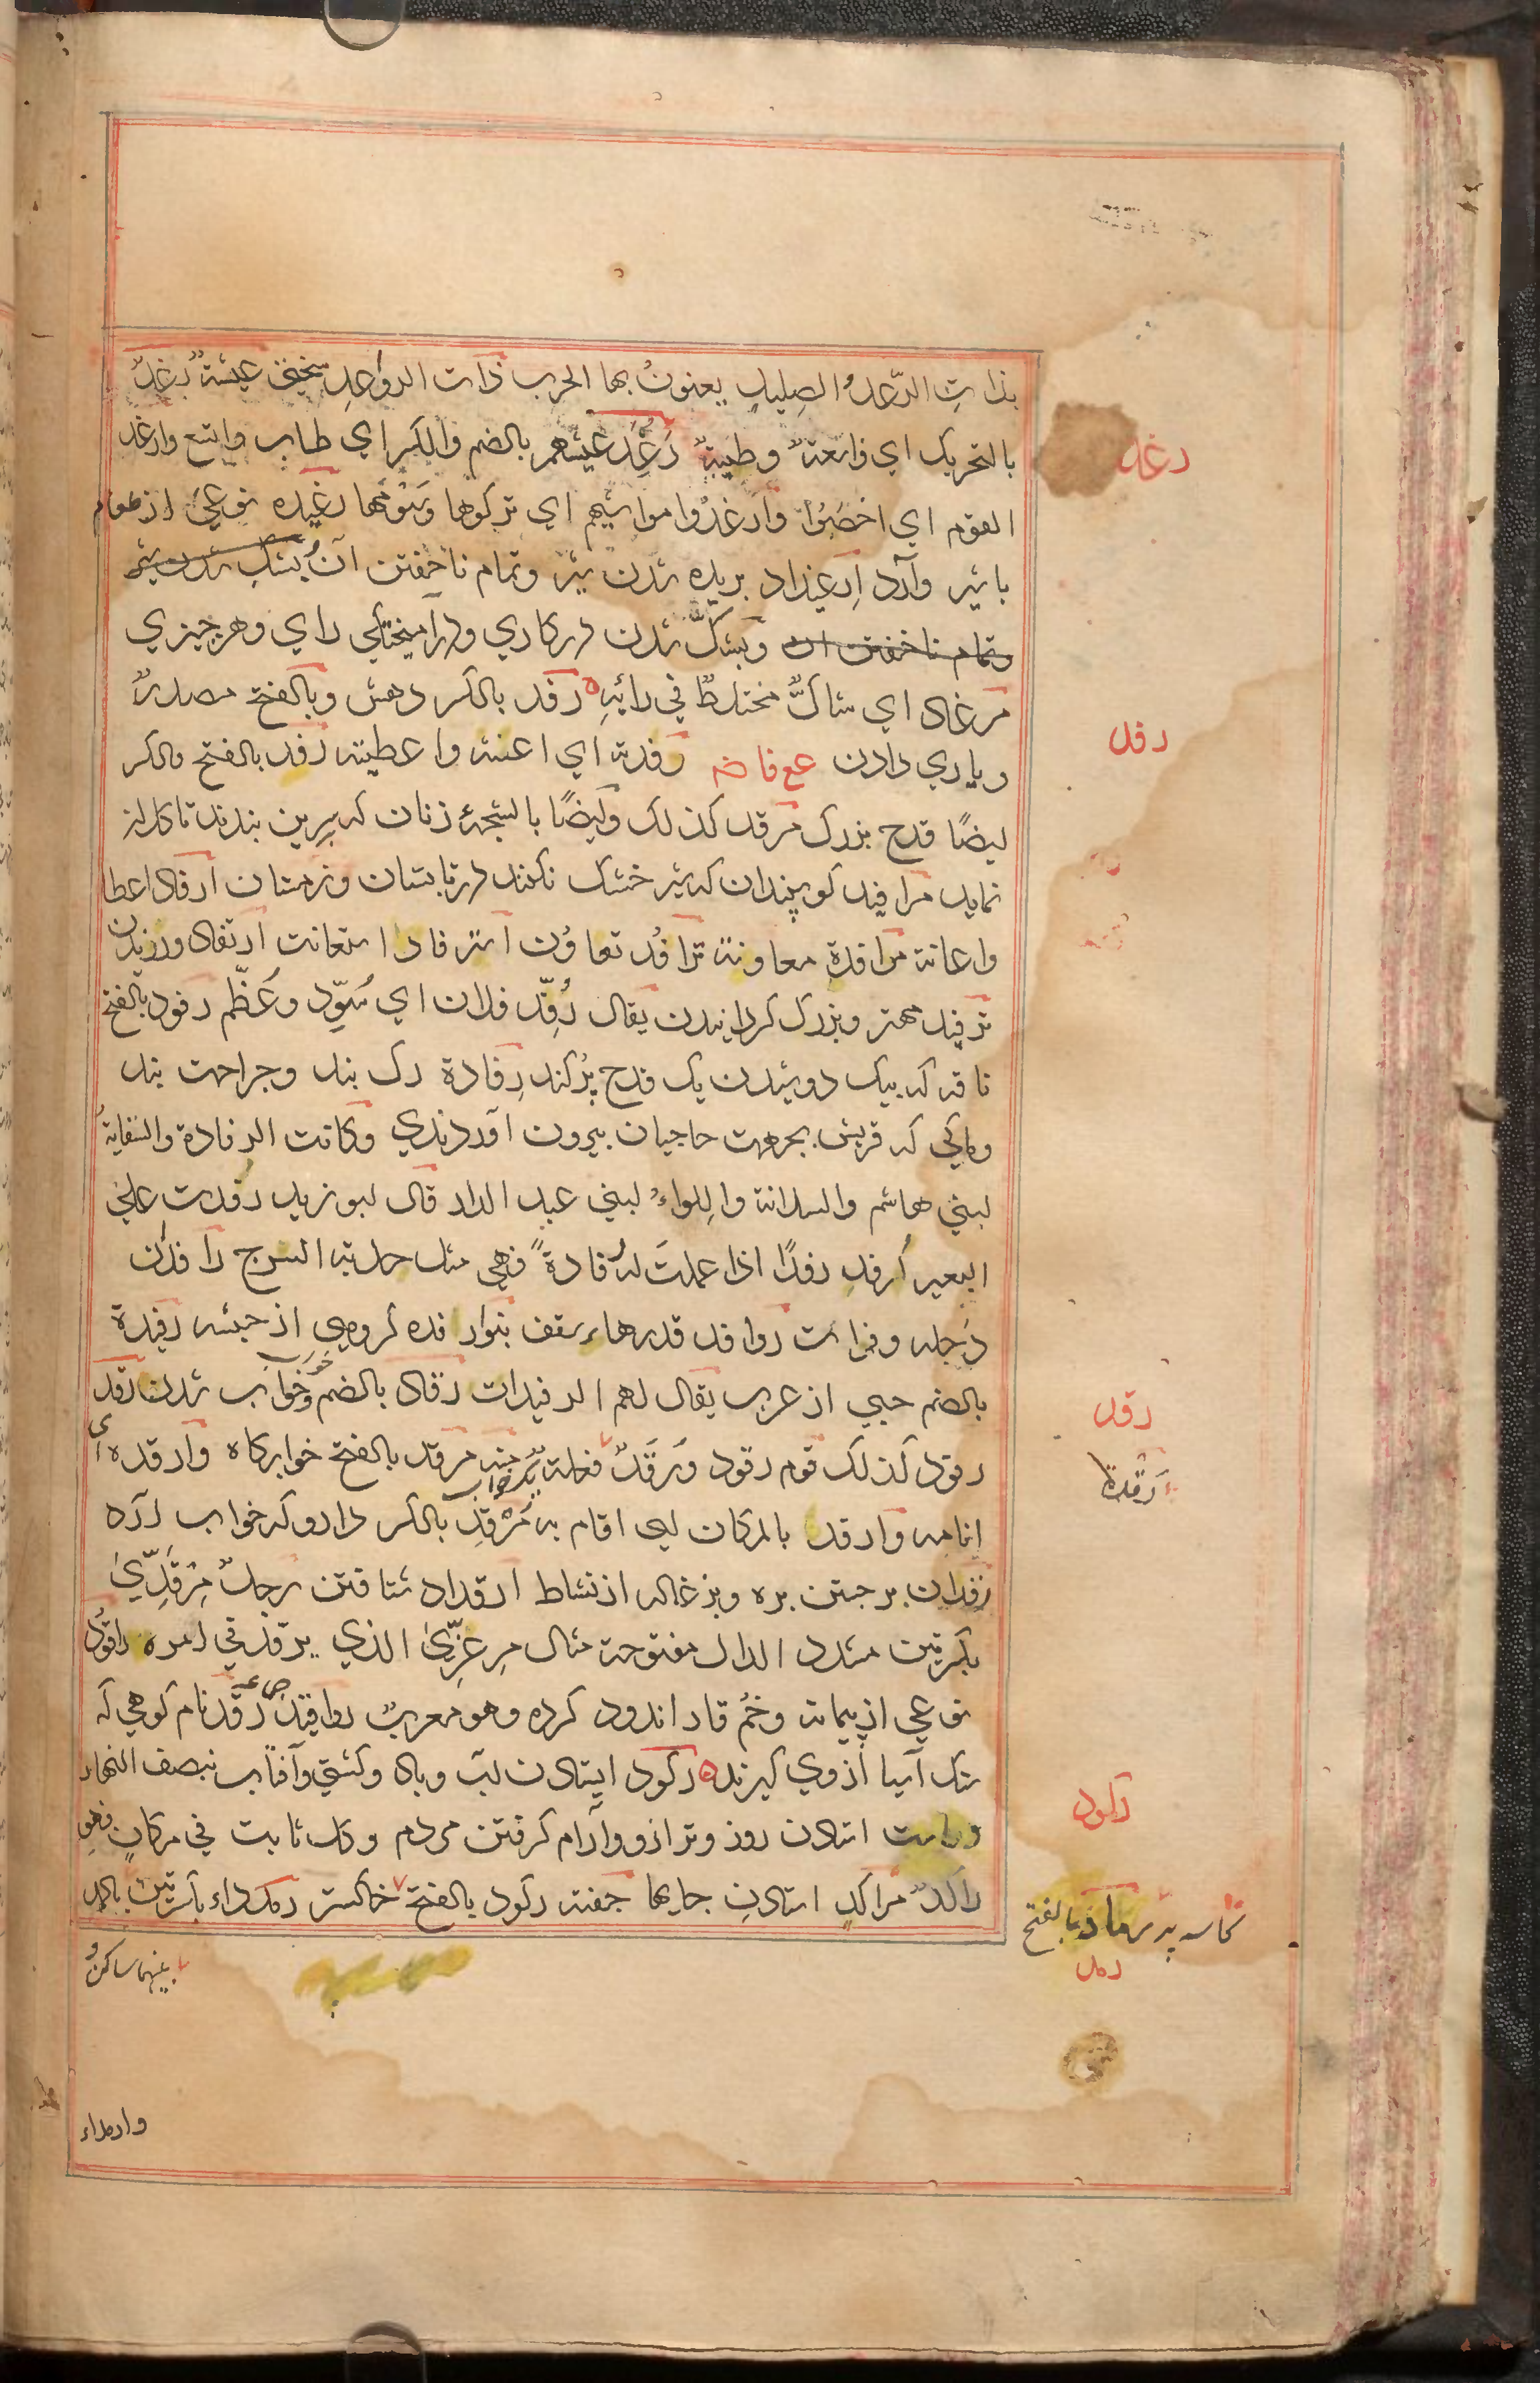 بذاتِ الرّعدِ والصليلِ يعنون بها الحرب ذات الرواعِدِ عيشة رَغَدٌ
بالتحریک ای واسعة وطیبة رَغُِدَ عیشهم بالضم والکسر ای طاب واتسع وارغد
القوم ای اخصبُوا وأرغدُوا مواشیهم ای ترکوها وسَوْمَها رغیده نوعی از طعام
باشیر وآرد اِرغیداد بریده شدن شیر وتمام ناخفتن آن بشک شدن شیر
وتمام ناخفتن ان وبشکّ شدن در کاری ودرآمیختگی رای وهر چیزی
مرغاد ای شاکٌّ مختلطٌ فی رائیهِ ه رفد بالکسر دهش وبالفتح مصدرٌ
ویاری دادن رفدته ای اعنته واعطیته رفد بالفتح والکسر
ایضًا قدح بزرک مرفد کذلک وایضًا زنان که بسرین بندند تا کلان
نماید مرافید کوسپندان که شیر خشک نکنند در تابستان وزمستان ارفاد اعطا
واعانة مرافدة معاونة ترافُد تعاوُن استرفاد استعانت ارتفاد ورزیدن
ترفید مهتر وبزرک کردانیدن یقال رُفِّد فلان ای سُوِّد وعُظِّم رفود بالفتح
ناقه که بیک دوشیدن یک قدح پُر کند رِفادة رک بند وجراحت بند
ومالی که قریش بجهت حاجیان بیرون اوردندی وکانت الرفادة والسقایة
لبنی هاشم والسدانة واللواءُ لبنی عبد الدار قال ابو زید رفدت علی
البعیر اُرفد رفدًا اذا عملتَ له رفادةً فهی مثل جدیة السرج رافدان
دجله وفرات روافد سقف بنوارفده کروهی از حبشه رفیدة
بالضم حیی از عرب یقال لهم الرفیدات رقاد بالضم خواب وخواب شدن رقد
رقود کذلک قوم رقود ورُقَّدٌ فعلة منه مرقد بالفتح خوابکاه وارقده ای
انامه وارقد بالمکان ای اقام به مُرْقِد بالکسر دارو که خواب آرد
رقدان برجستن بره وبزغاله از نشاط ارقداد شتافتن رجلٌ مِرْقِدّیٰ
بکسرتین مشدد الدال مفتوحة مثال مرعزّیٰ الذی یرقد فی امره راقود
نوعی از پیمانه وخُم قار اندود کرده وهو معرب رواقید ج رَقْد نام کوهی که
سنک آسیا ازوی کیرند ه رکود ایستادن آب وباد وکشتی وآفتاب نبصف النهار
وراست استادن روز وترازو وآرام کرفتن مردم وکل ثابت فی مکانٍ فهو
راکدٌ مراکد استادن جایها جفنة رکود بالفتح خاکستر رمد رمداء بکسرتین بالمد
رغد
رفد
رقد
رَقْدة
رکود
کاسه پر رماد بالفتح
رمد
بینهما ساکنٌ
وارمداء